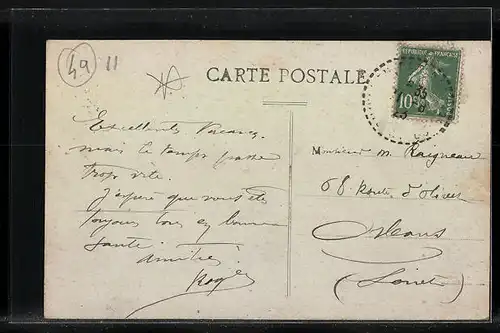 49 11
CARTE POSTALE
10
Excellentes vacances
mais le temps passe
trop vite.
J'espère que vous êtes
toujours tous en bonne
santé.
Amitiés
Roger
Monsieur M. Raigneau
68 Route d'Olivet
Orléans
(Loiret)